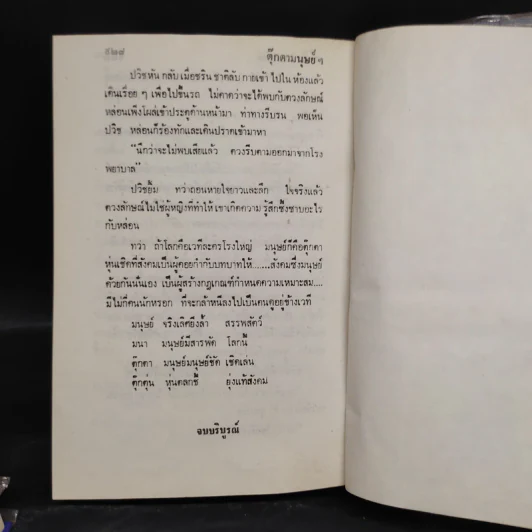 ๕๒๘
ตุ๊กตามนุษย์ ๑
ปวิชหัน กลับ เมื่อชริน ชาติลับ กายเข้า ไปใน ห้องแล้ว
เดินเรื่อย ๆ เพื่อไปขึ้นรถ ไม่คาดว่าจะได้พบกับดวงลักษณ์
หล่อนเพิ่งโผล่เข้าประตูด้านหน้ามา ท่าทางรีบรน พอเห็น
ปวิช หล่อนก็ร้องทักและเดินปราดเข้ามาหา
“นึกว่าจะไม่พบเสียแล้ว ดวงรีบตามออกมาจากโรง
พยาบาล”
ปวิชยิ้ม ทว่าถอนหายใจยาวและลึก ใจจริงแล้ว
ดวงลักษณ์ไม่ใช่ผู้หญิงที่ทำให้เขาเกิดความ รู้สึกซึ้งซาบอะไร
กับหล่อน
ทว่า ถ้าโลกคือเวทีละครโรงใหญ่ มนุษย์ก็คือตุ๊กตา
หุ่นเชิดที่สังคมเป็นผู้คอยกำกับบทบาทให้......สังคมซึ่งมนุษย์
ด้วยกันนั่นเอง เป็นผู้สร้างกฎเกณฑ์กำหนดความเหมาะสม....
มีไม่กี่คนนักหรอก ที่จะกล้าหนีลงไปเป็นคนดูอยู่ข้างเวที
มนุษย์ จริงเลิศยิ่งล้ำ สรรพสัตว์
มนา มนุษย์มีสารพัด โลกนี้
ตุ๊กตา มนุษย์มนุษย์ชัด เชิดเล่น
ตุ๊กตุ่น หุ่นตลกชี้ ยุ่งแท้สังคม
จบบริบูรณ์